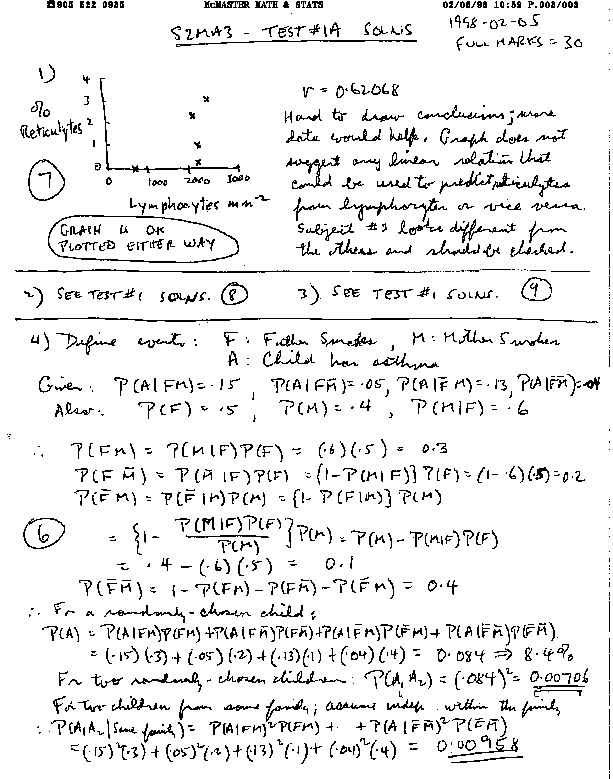 ☎905 522 0935 McMASTER MATH & STATS 02/05/98 10:59 P.002/003
1998-02-05
S2MA3 - TEST #1A SOLNS
FULL MARKS = 30
1)
% Reticulytes
4
3
2
1
0
0 1000 2000 3000
Lymphocytes mm⁻²
7
GRAPH IS OK
PLOTTED EITHER WAY
r = 0.62068
Hard to draw conclusions; more
data would help. Graph does not
suggest any linear relation that
could be used to predict reticulytes
from lymphocytes or vice versa.
Subject #3 looks different from
the others and should be checked.
2) SEE TEST #1 SOLNS. 8 3) SEE TEST #1 SOLNS. 9
4) Define events: F: Father Smokes, M: Mother Smokes
A: Child has asthma
Given: P(A|FM)=.15, P(A|FM̄)=.05, P(A|F̄M)=.13, P(A|F̄M̄)=.04
Also: P(F) = .5, P(M) = .4, P(M|F) = .6
∴ P(FM) = P(M|F)P(F) = (.6)(.5) = 0.3
P(FM̄) = P(M̄|F)P(F) = {1-P(M|F)}P(F) = (1-.6)(.5)=0.2
P(F̄M) = P(F̄|M)P(M) = {1-P(F|M)}P(M)
6
= {1 - P(M|F)P(F)/P(M)}P(M) = P(M) - P(M|F)P(F)
= .4 - (.6)(.5) = 0.1
P(F̄M̄) = 1 - P(FM) - P(FM̄) - P(F̄M) = 0.4
∴ For a randomly-chosen child:
P(A) = P(A|FM)P(FM)+P(A|FM̄)P(FM̄)+P(A|F̄M)P(F̄M)+P(A|F̄M̄)P(F̄M̄)
= (.15)(.3)+(.05)(.2)+(.13)(.1)+(.04)(.4) = 0.084 ⇒ 8.4%
For two randomly-chosen children: P(A₁A₂) = (.084)² = 0.00706
For two children from same family; assume indep. within the family
∴ P(A₁A₂|Same family) = P(A|FM)²P(FM) + + P(A|F̄M̄)²P(F̄M̄)
= (.15)²(.3)+(.05)²(.2)+(.13)²(.1)+(.04)²(.4) = 0.00958